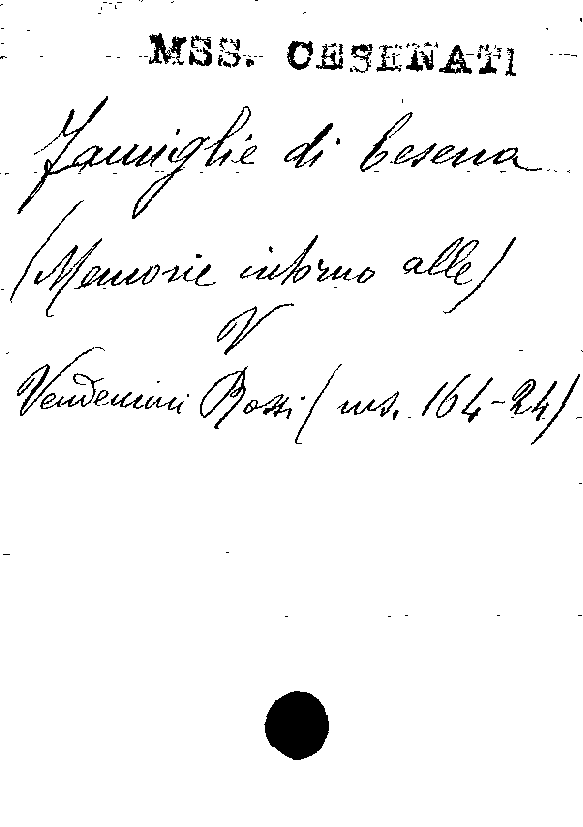 MSS. CESENATI
Famiglie di Cesena
(Memorie intorno alle)
V
Vendemini Rossi (ms. 164-24)